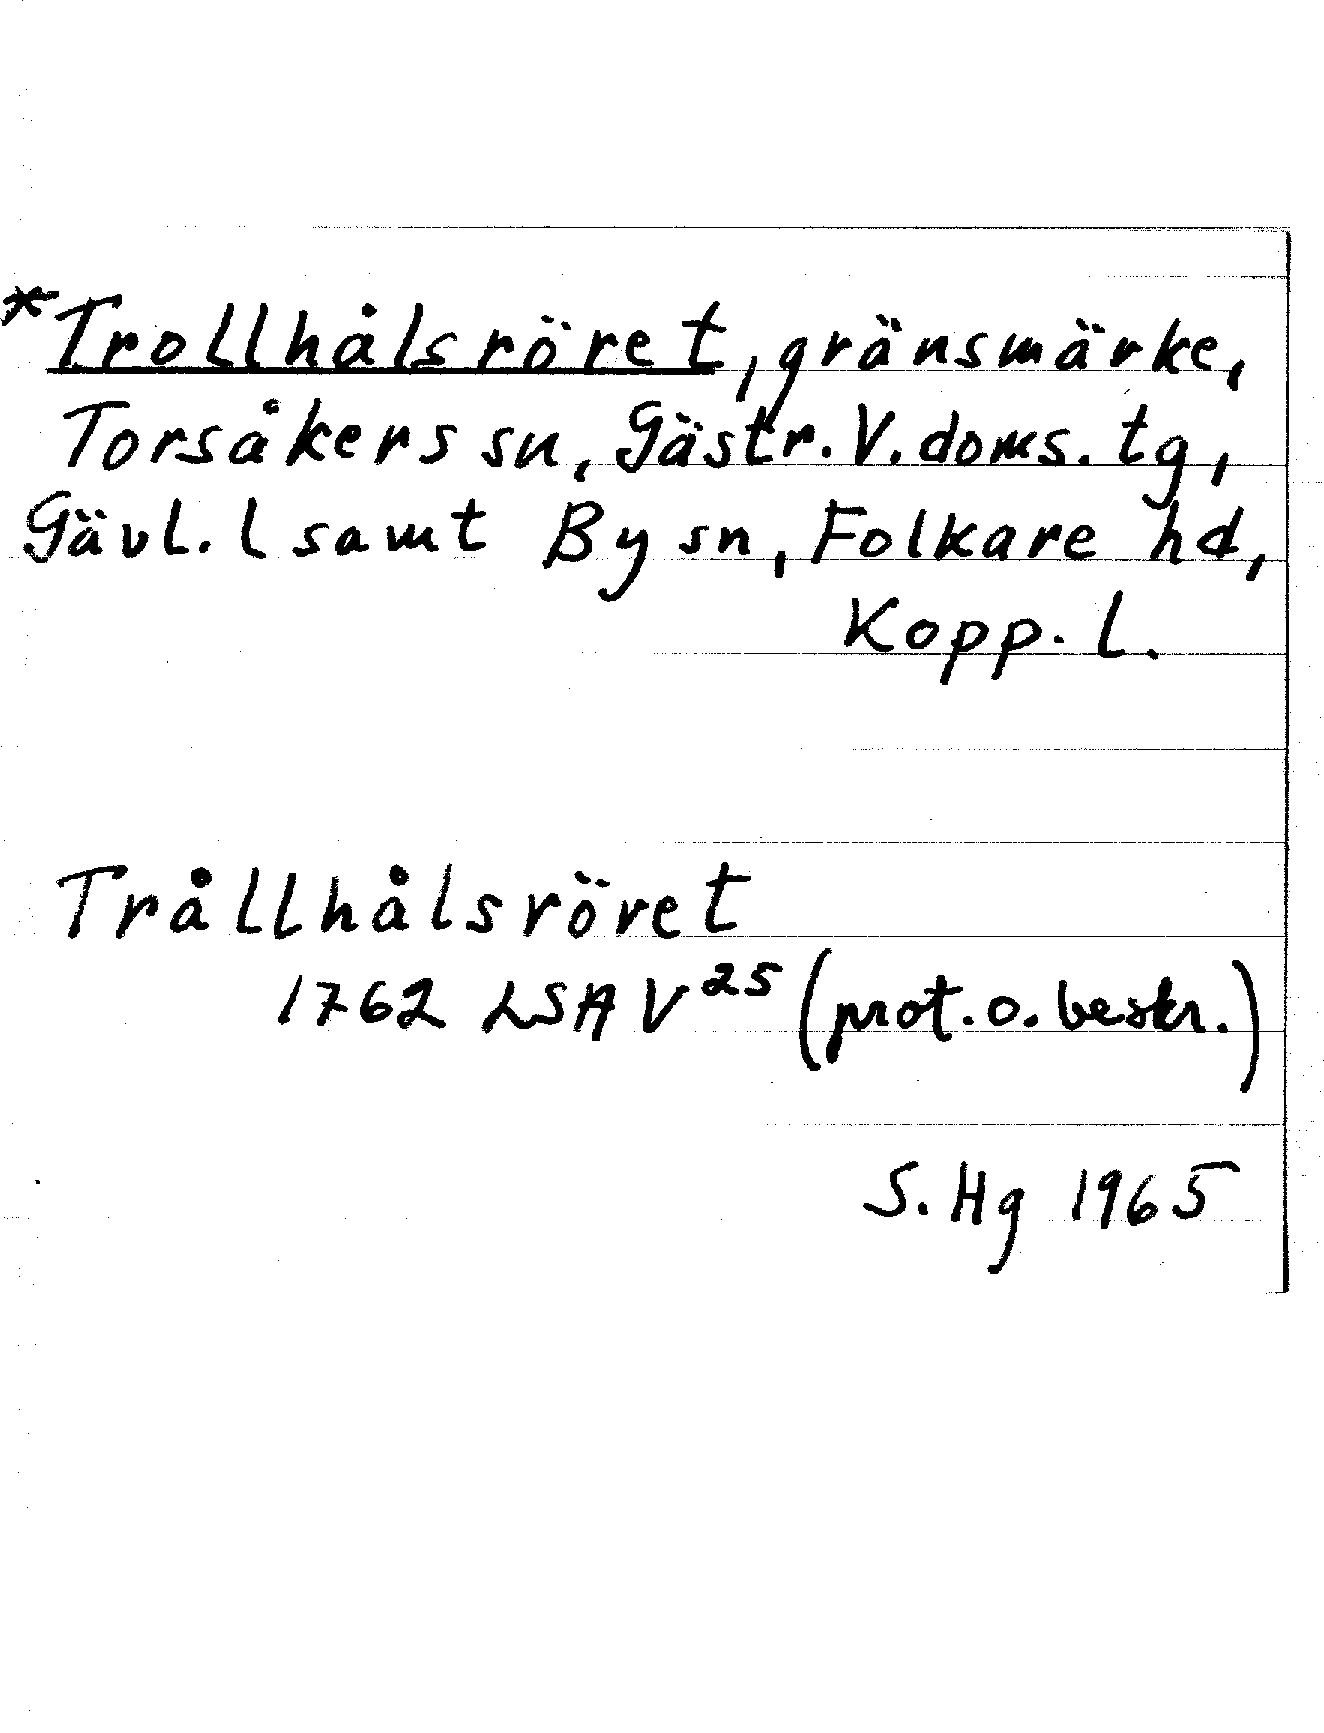 *Trollhålsröret, gränsmärke,
Torsåkers sn, Gästr. V. doms. tg,
Gävl. l samt By sn, Folkare hd,
Kopp. l.
Trållhålsröret
1762 LSA V²⁵ (prot. o. beskr.)
S. Hg 1965